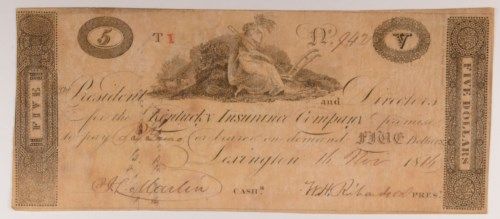 5 T 1 No. 942 V
The President and Directors
for the Kentucky Insurance Company promise
to pay or bearer on demand FIVE Dollars
Lexington 16 Nov 1816
CASHr. PRES.
FIVE
FIVE DOLLARS